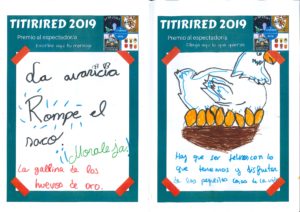 TITIRIRED 2019
Premio al espectador/a
Escribe aquí tu mensaje
La avaricia
Rompe el
saco
¡¡Moraleja!
La gallina de los
huevos de oro.
TITIRIRED 2019
Premio al espectador/a
Dibuja aquí lo que quieras
Hay que ser felices con lo
que tenemos y disfrutar
de las pequeñas cosas de la vida